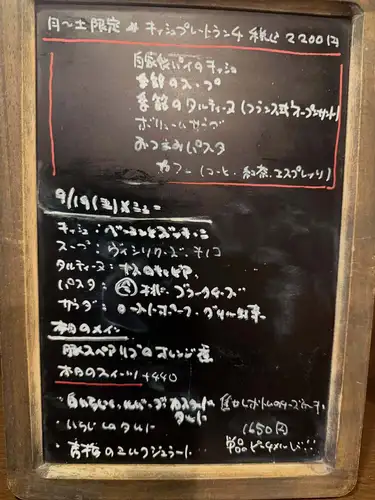 月〜土限定 キッシュプレートランチ 税込 2200円
自家製パイのキッシュ
季節のスープ
季節のタルティーヌ(フランス式オープンサンド)
ボリュームサラダ
おつまみパスタ
カフェ(コーヒー・紅茶・エスプレッソ)
9/19(金)メニュー
キッシュ:ベーコンとズッキーニ
スープ:ヴィシソワーズ・キノコ
タルティーヌ:
パスタ:ブラータチーズ
サラダ:ローストポーク・グリル野菜
本日のメイン
豚スペアリブのオレンジ煮
本日のスイーツ +440
・カスタードタルト
・いちじくのタルト
1650円
・青梅のミルクジェラート